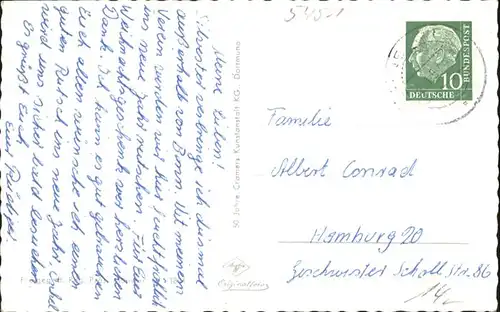 545-1
Meine Lieben!
Silvester verbringe ich diesmal
außerhalb von Bonn. Mit meinem
Verein werden wir hier feuchtfröhlich
ins neue Jahr rutschen. Für Euer
Weihnachtsgeschenk vor herzlichen
Dank. Ich kann es gut gebrauchen
Euch allen wünsche ich einen
guten Rutsch ins neue Jahr.
wird uns sicher bald besuchen
Es grüßt Euch
Euer
50 Jahre Cramers Kunstanstalt KG. Dortmund
Originalfoto
10
DEUTSCHE
BUNDESPOST
Familie
Albert Conrad
Hamburg 20
Geschwister Scholl Str. 86
14,-